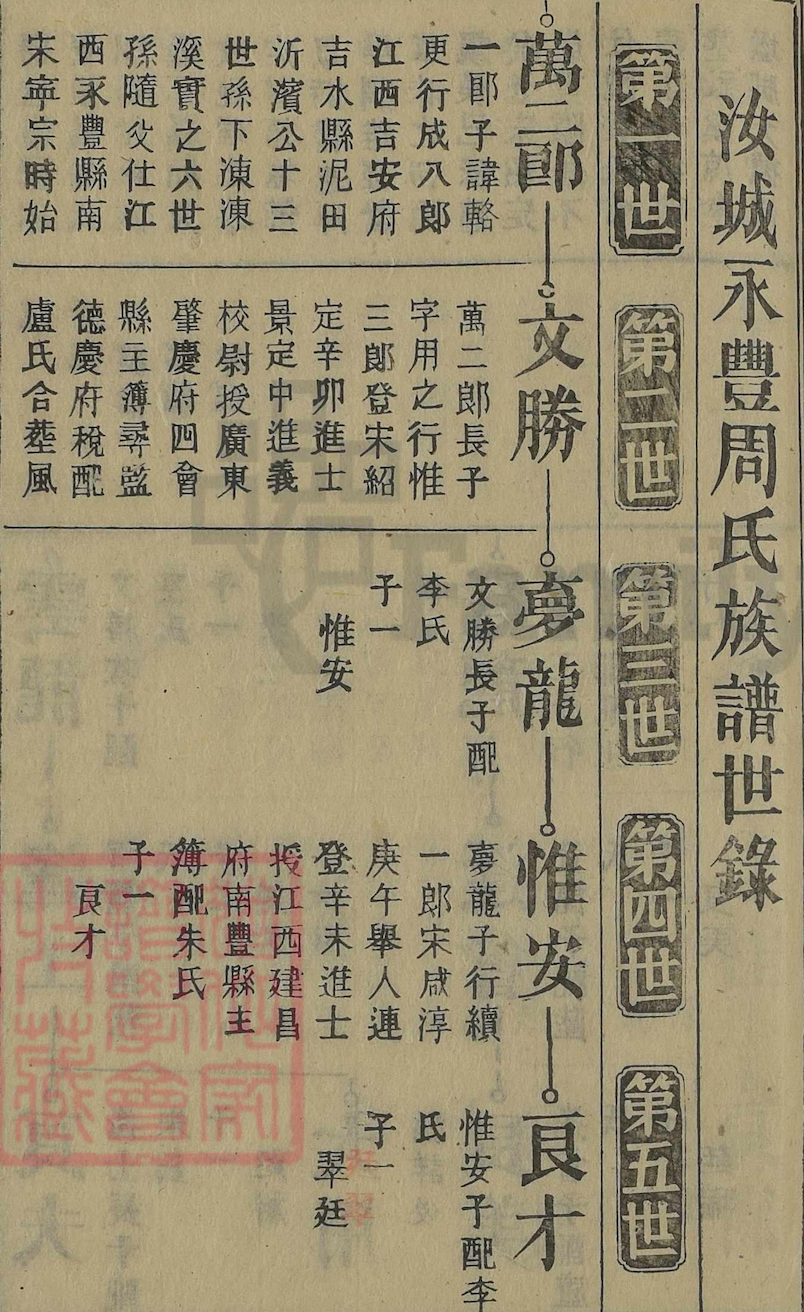 汝城永豐周氏族譜世錄
第一世
第二世
第三世
第四世
第五世
萬二郎
一郎子諱輅
更行成八郎
江西吉安府
吉水縣泥田
沂濱公十三
世孫下凍凍
溪實之六世
孫隨父仕江
西永豐縣南
宋寧宗時始
文勝
萬二郎長子
字用之行惟
三郎登宋紹
定辛卯進士
景定中進義
校尉授廣東
肇慶府四會
縣主簿尋藍
德慶府稅配
盧氏合塟風
夢龍
文勝長子配
李氏
子一
惟安
惟安
夢龍子行續
一郎宋咸淳
庚午舉人連
登辛未進士
授江西建昌
府南豐縣主
簿配朱氏
子一
良才
良才
惟安子配李
氏
子一
翠廷